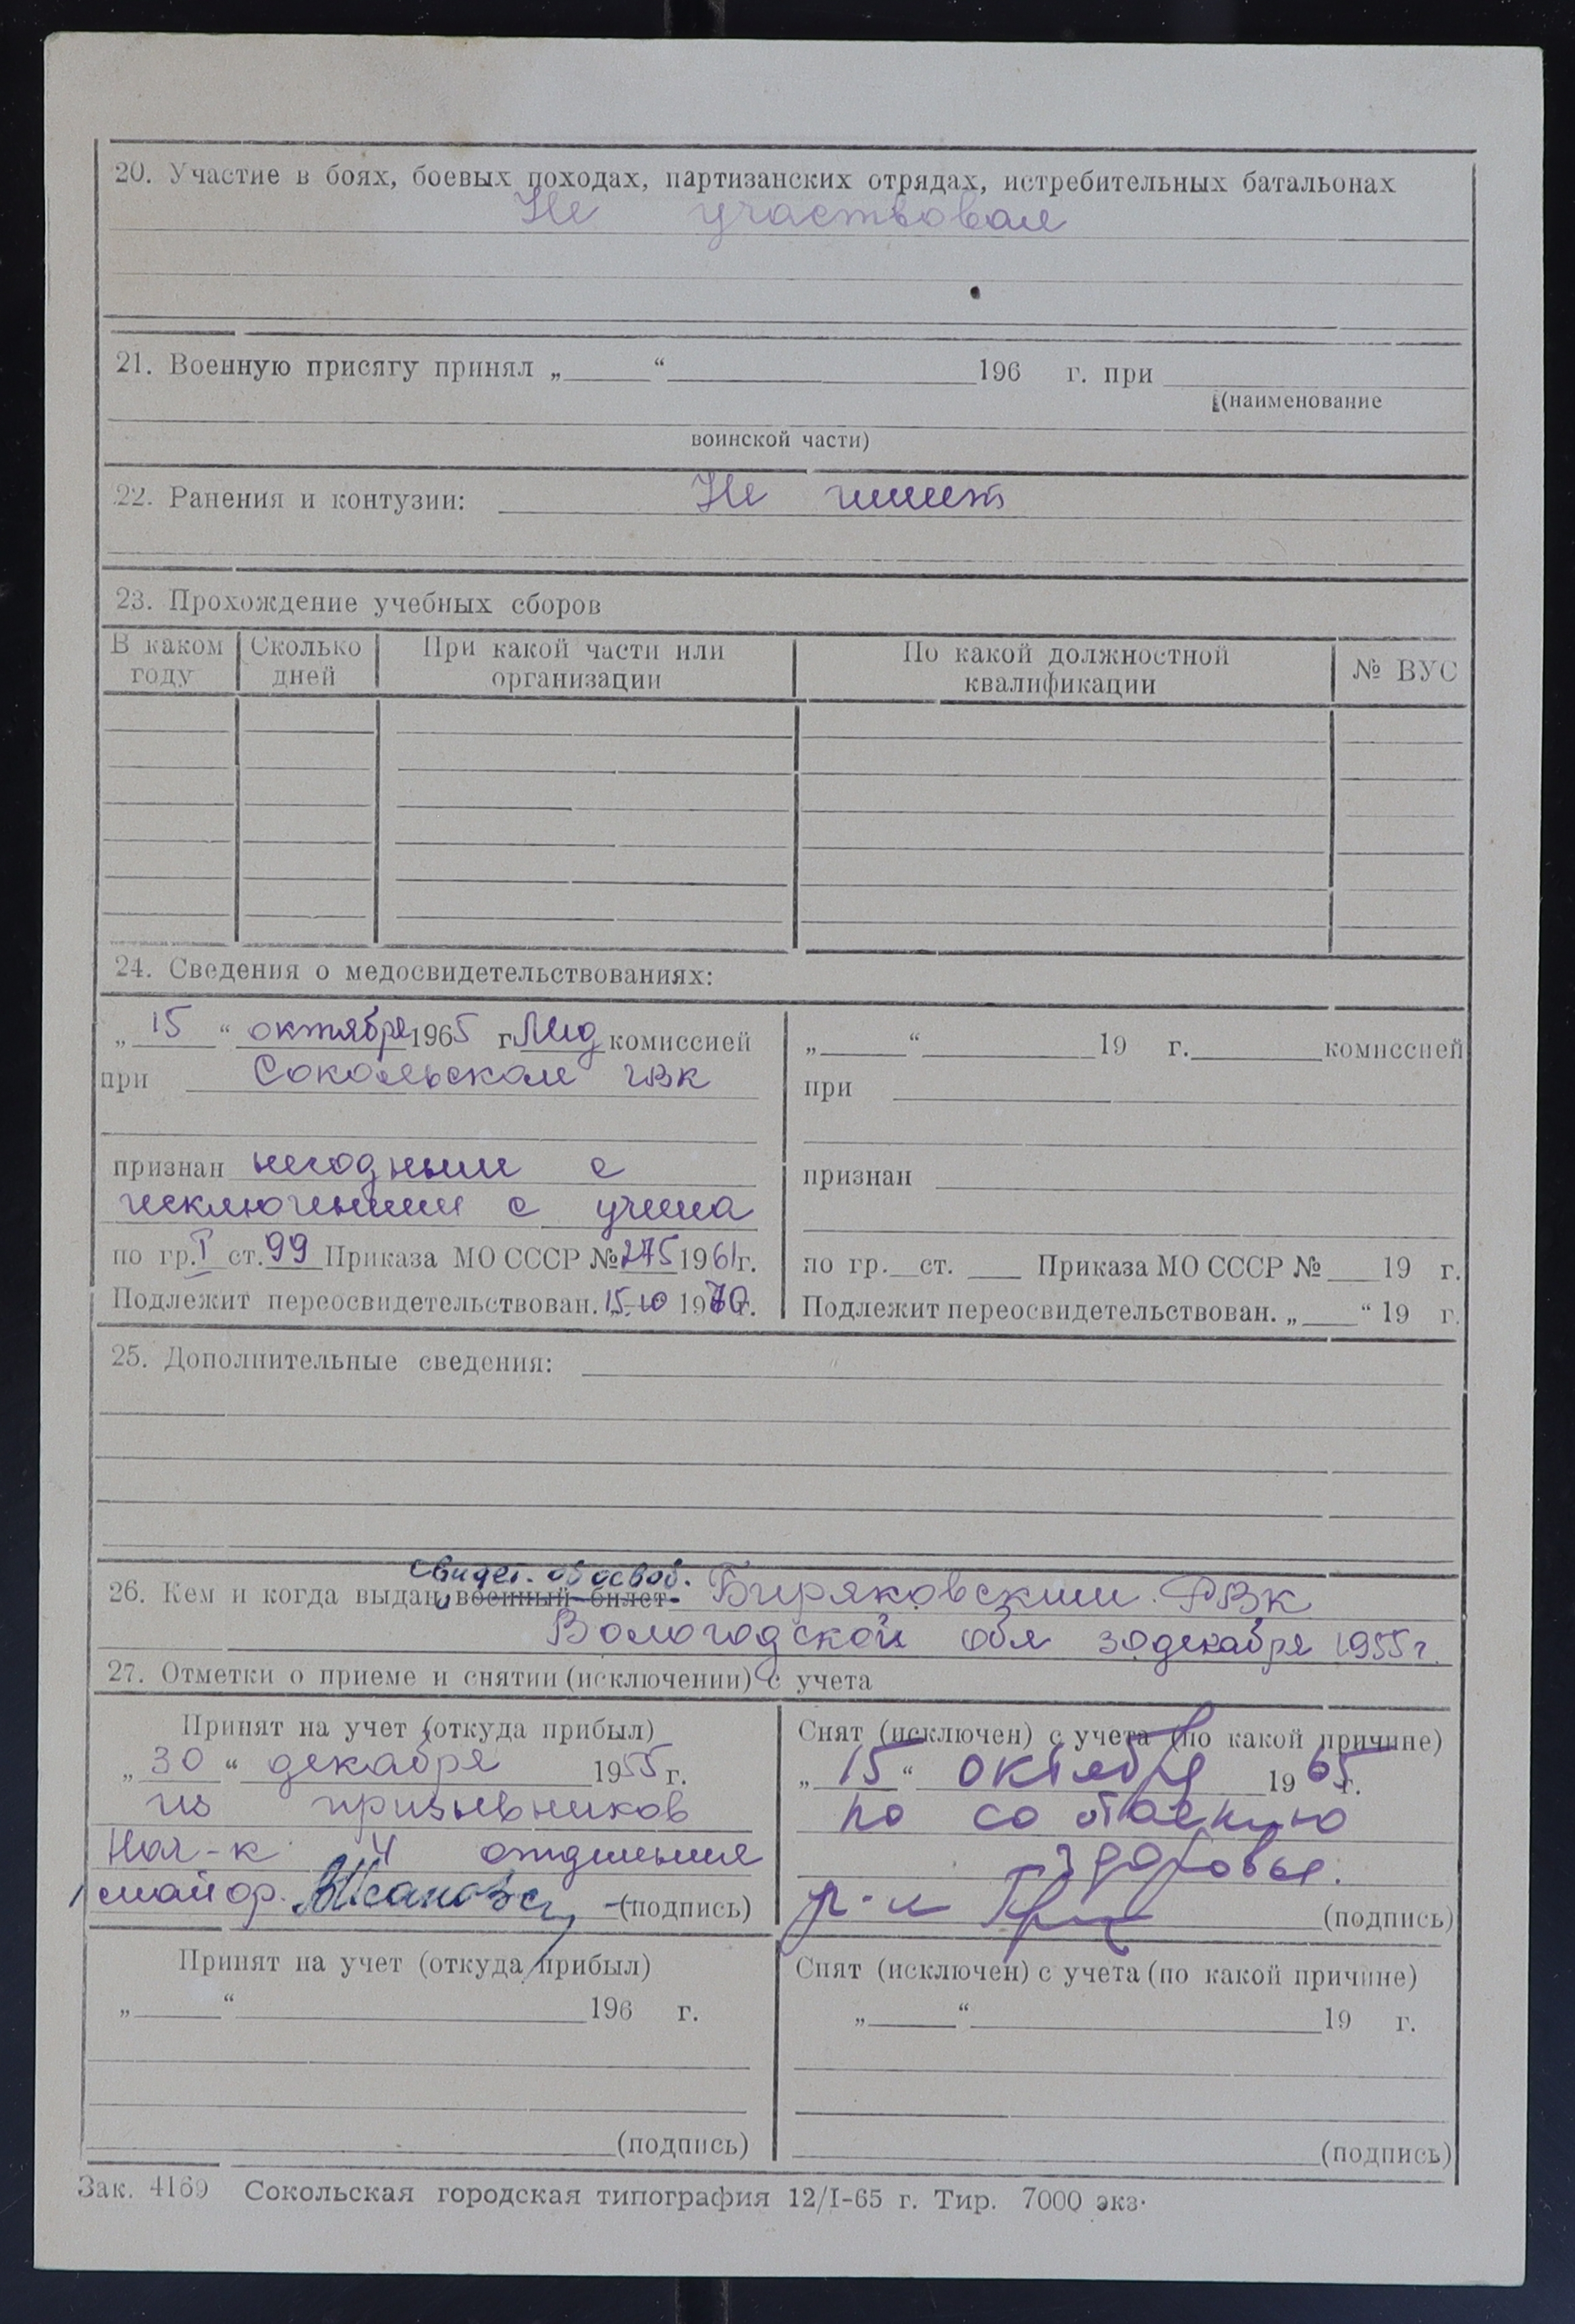 20. Участие в боях, боевых походах, партизанских отрядах, истребительных батальонах
Не участвовал
21. Военную присягу принял „ “ 196 г. при
(наименование
воинской части)
22. Ранения и контузии: Не имеет
23. Прохождение учебных сборов
В каком году
Сколько дней
При какой части или организации
По какой должностной квалификации
№ ВУС
24. Сведения о медосвидетельствованиях:
„ 15 “ октября 1965 г. Мед комиссией
при Сокольском гвк
признан негодным с
исключением с учета
по гр. I ст. 99 Приказа МО СССР № 275 1961г.
Подлежит переосвидетельствован. „15.10 1970г.
„ “ 19 г. комиссией
при
признан
по гр. ст. Приказа МО СССР № 19 г.
Подлежит переосвидетельствован. „ “ 19 г.
25. Дополнительные сведения:
свидет. об освоб.
26. Кем и когда выдан военный билет Биряковским РВК
Вологодской обл 30 декабря 1955 г.
27. Отметки о приеме и снятии (исключении) с учета
Принят на учет (откуда прибыл)
„ 30 “ декабря 1955 г.
из призывников
Нач-к 4 отделения
майор. (подпись)
Снят (исключен) с учета (по какой причине)
„ 15 “ октября 1965 г.
по состоянию
здоровья.
(подпись)
Принят на учет (откуда прибыл)
„ “ 196 г.
(подпись)
Снят (исключен) с учета (по какой причине)
„ “ 19 г.
(подпись)
Зак. 4169 Сокольская городская типография 12/I-65 г. Тир. 7000 экз.